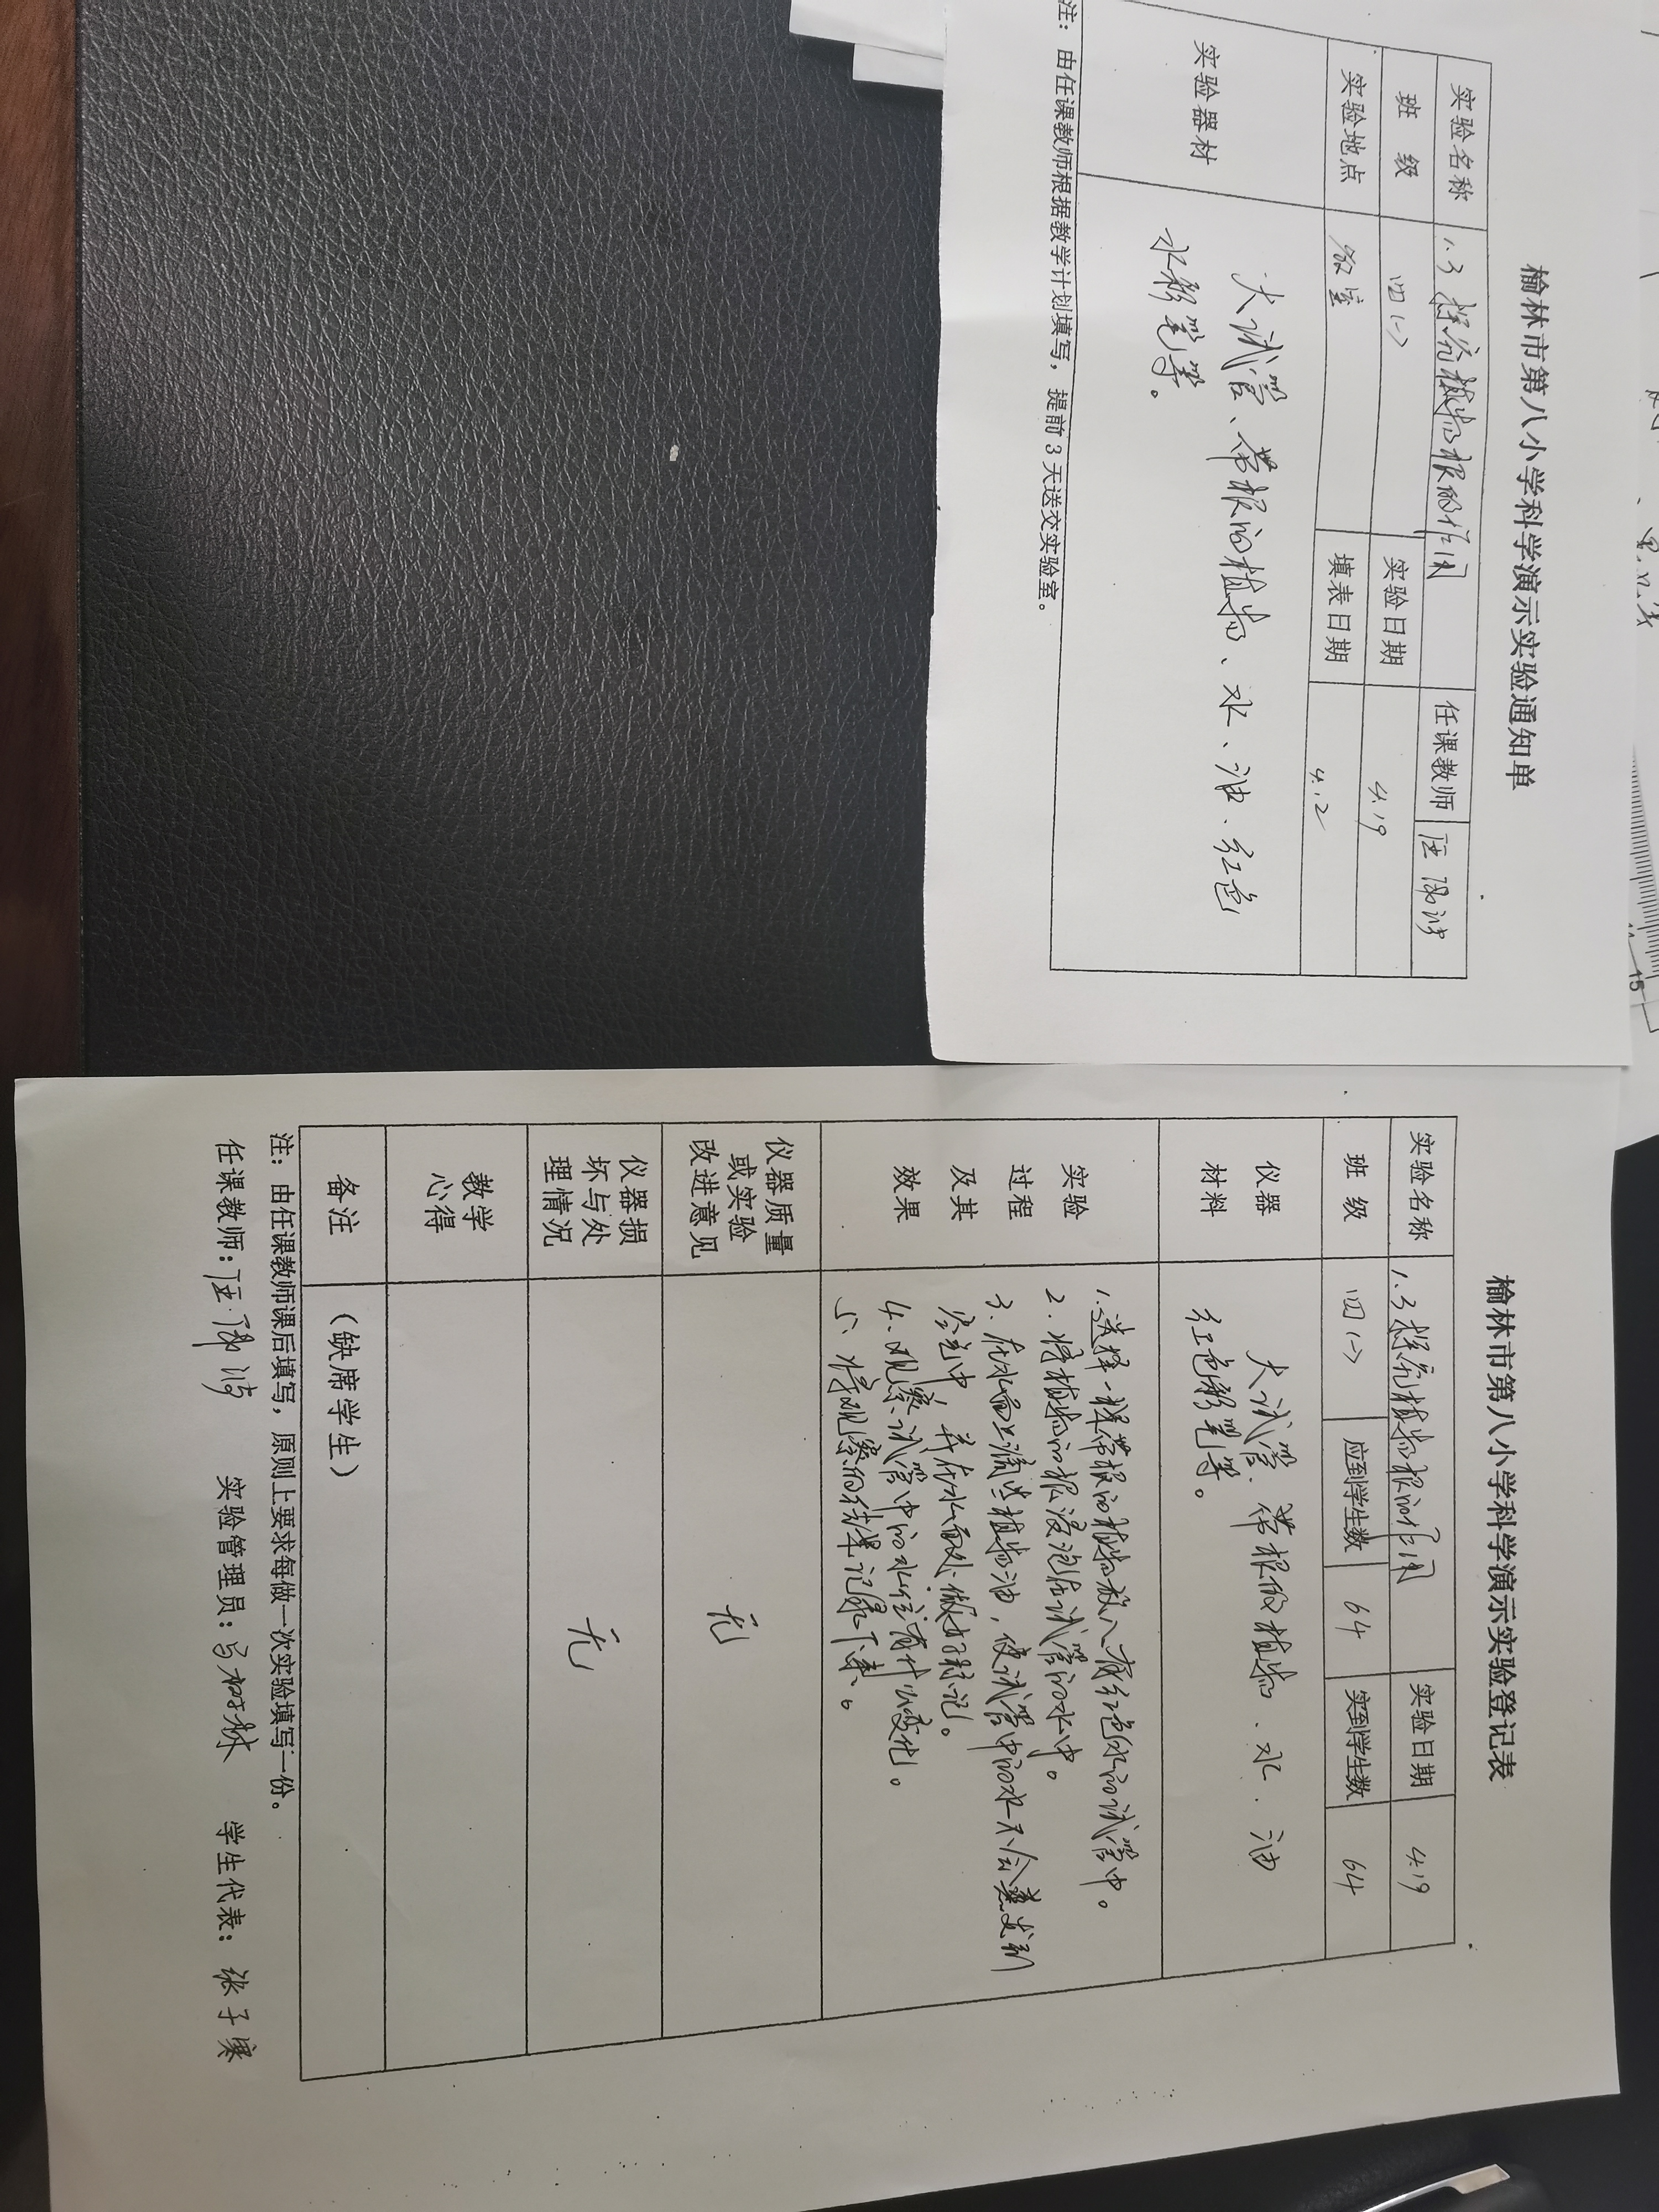 榆林市第八小学科学演示实验通知单
实验名称 1.3 探究植物根的作用 任课教师
班 级 四(一) 实验日期 4.19
实验地点 教室 填表日期 4.12
实验器材 大试管、带根的植物、水、油、红色
水彩笔等。
注：由任课教师根据教学计划填写，提前3天送交实验室。
榆林市第八小学科学演示实验登记表
实验名称 1.3探究植物根的作用 实验日期 4.19
班 级 四(一) 应到学生数 64 实到学生数 64
仪器 大试管、带根的植物、水、油
材料 红色彩笔等。
实验
过程
及其
效果
1.选择一棵带根的植物放入有红色水的试管中。
2.将植物的根浸泡在试管的水中。
3.在水面上滴些植物油，使试管中的水不会蒸发到
空气中，并在水面处做好标记。
4.观察试管中的水位有什么变化。
5.将观察的结果记录下来。
仪器质量
或实验
改进意见
无
仪器损
坏与处
理情况
无
教学
心得
备注 （缺席学生）
注：由任课教师课后填写，原则上要求每做一次实验填写一份。
任课教师： 实验管理员： 学生代表：张子寒
15